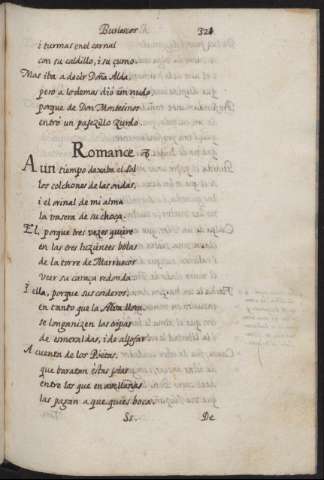 Burlescos
321
i turmas enel carnal
con su caldillo, i su çumo.
Mas iba a decir Doña Alda,
pero a lo demas dio un nudo,
porque de Don Montesinos
entrò un pajeçillo zurdo.
Romance
Aun tiempo dexaba el Sol
los colchones de las ondas,
i el orinal de mi alma
la vasera de su choça.
El, porque tres vezes quiere
en las tres luzientes bolas
de la torre de Marruecos
veer su caraça redonda
I ella, porque sus corderos,
en tanto que la Alva llora,
se longanizen las tripas
de esmeraldas, i de aljofar
A cuenta de los Poetas,
que baratan estas joias
entre los que en avellanas
las pagan a que quies boca.
Ss.
De